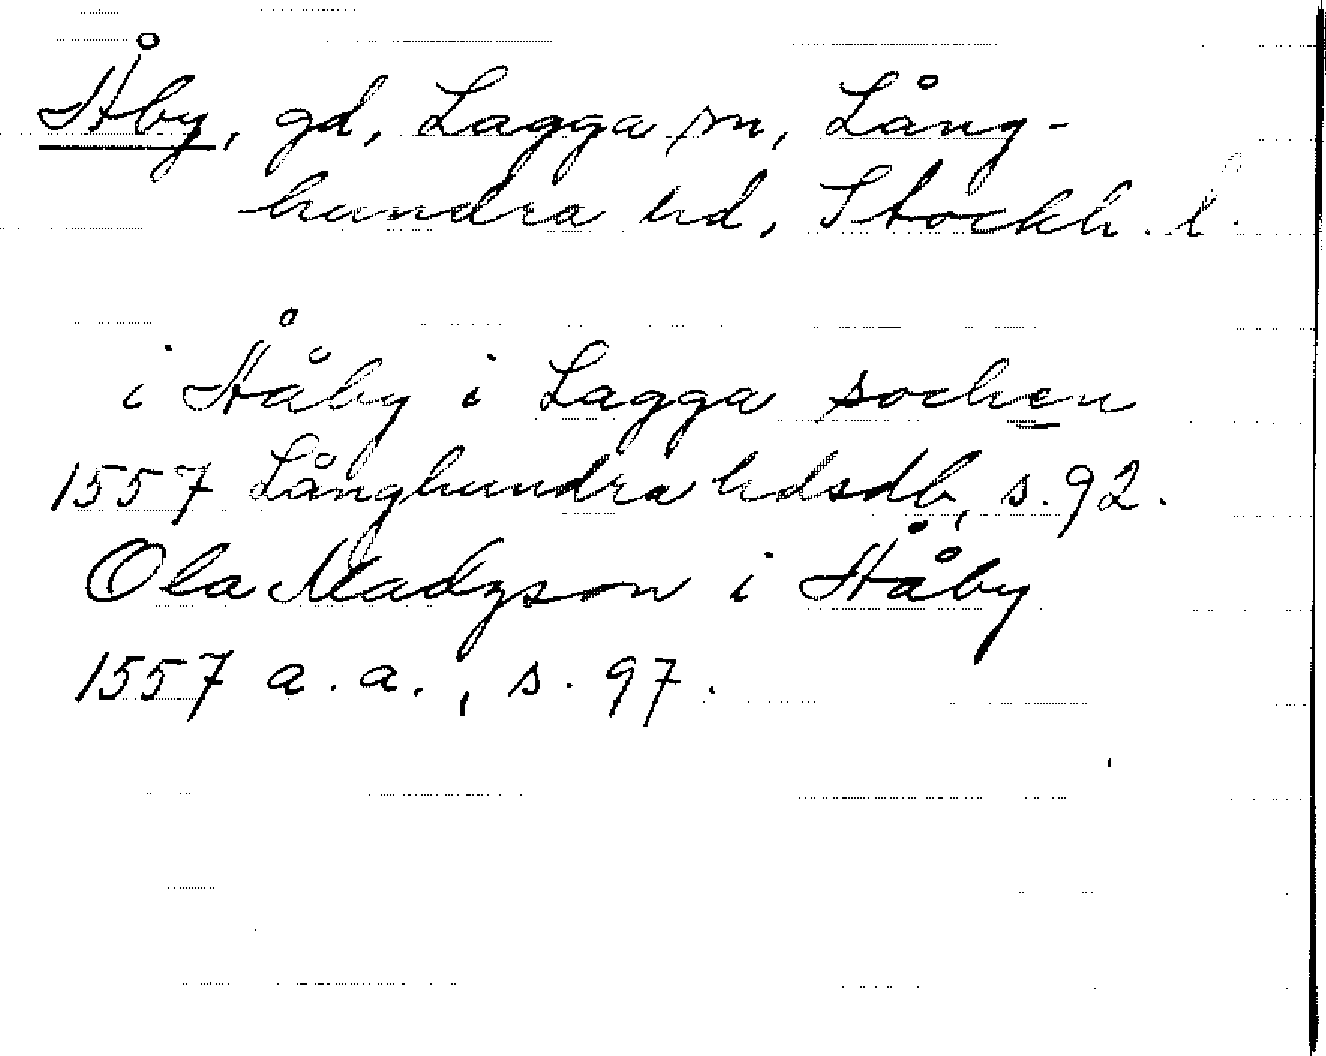 Åby, gd, Lagga sn, Lång-
hundra hd, Stockh. l.
i Ååby i Lagga sochen
1557 Långhundra hdsdb, s. 92.
Ola Madzson i Ååby
1557 a. a., s. 97.